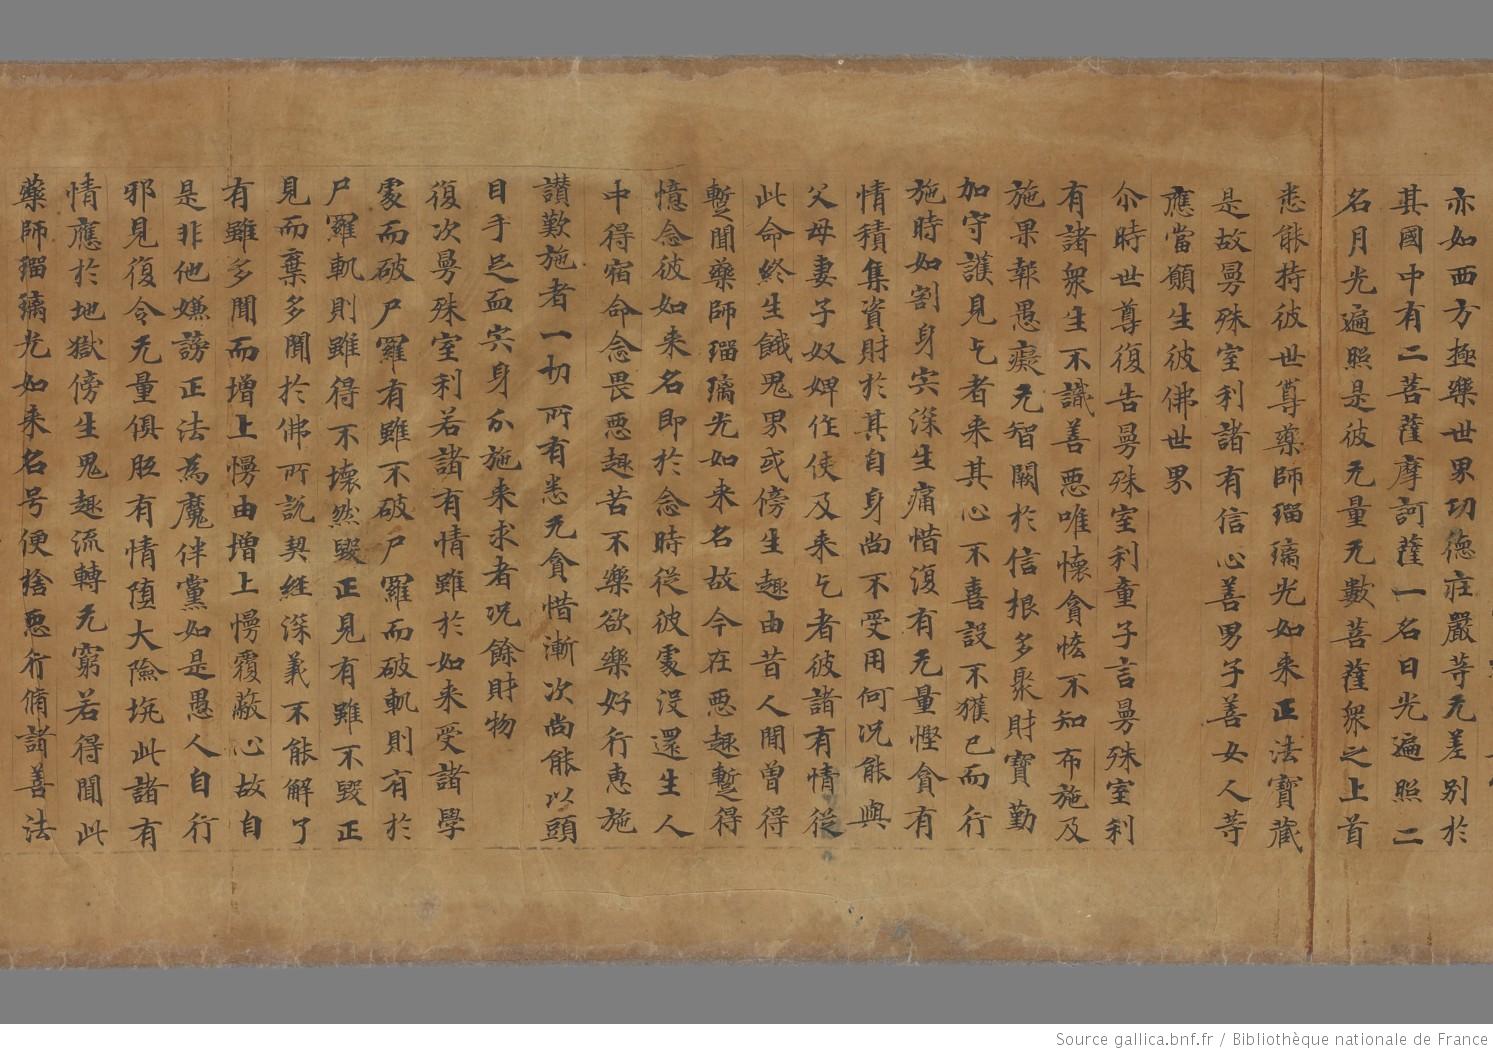 亦如西方極樂世界功德莊嚴等无差別於
其國中有二菩薩摩訶薩一名日光遍照二
名月光遍照是彼无量无數菩薩衆之上首
悉能持彼世尊藥師瑠璃光如来正法寶藏
是故曼殊室利諸有信心善男子善女人等
應當願生彼佛世界
尒時世尊復告曼殊室利童子言曼殊室利
有諸衆生不識善惡唯懷貪恡不知布施及
施果報愚癡无智闕於信根多聚財寶勤
加守護見乞者来其心不喜設不獲已而行
施時如割身宍深生痛惜復有无量慳貪有
情積集資財於其自身尚不受用何况能與
父母妻子奴婢作使及来乞者彼諸有情從
此命終生餓鬼界或傍生趣由昔人間曽得
蹔聞藥師瑠璃光如来名故今在惡趣蹔得
憶念彼如来名即於念時從彼處沒還生人
中得宿命念畏惡趣苦不樂欲樂好行惠施
讃歎施者一切所有悉无貪惜漸次尚能以頭
目手足血宍身分施来求者况餘財物
復次曼殊室利若諸有情雖於如来受諸學
處而破尸羅有雖不破尸羅而破軌則有於
尸羅軌則雖得不壞然毀正見有雖不毀正
見而棄多聞於佛所説契経深義不能解了
有雖多聞而増上慢由増上慢覆蔽心故自
是非他嫌謗正法為魔伴黨如是愚人自行
邪見復令无量俱胝有情堕大險坑此諸有
情應於地獄傍生鬼趣流轉无窮若得聞此
藥師瑠璃光如来名号便捨惡行脩諸善法
Source gallica.bnf.fr / Bibliothèque nationale de France